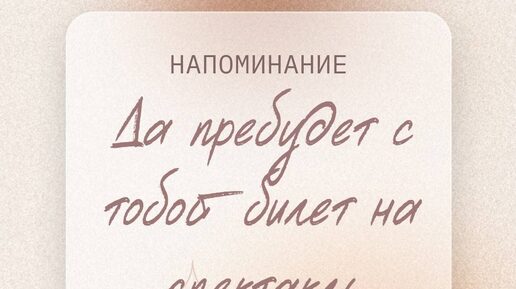 НАПОМИНАНИЕ
Да пребудет с
тобой билет на
спектакль